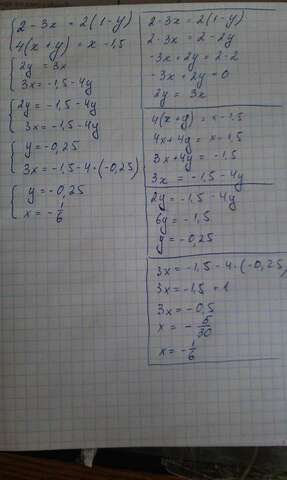 2 - 3x = 2(1-y)
4(x+y) = x - 1,5
2y = 3x
3x = -1,5 - 4y
2y = -1,5 - 4y
3x = -1,5 - 4y
y = -0,25
3x = -1,5 - 4·(-0,25)
y = -0,25
x = -1/6
2 - 3x = 2(1-y)
2 - 3x = 2 - 2y
-3x + 2y = 2 - 2
-3x + 2y = 0
2y = 3x
4(x+y) = x - 1,5
4x + 4y = x - 1,5
3x + 4y = -1,5
3x = -1,5 - 4y
2y = -1,5 - 4y
6y = -1,5
y = -0,25
3x = -1,5 - 4·(-0,25)
3x = -1,5 + 1
3x = -0,5
x = -5/30
x = -1/6